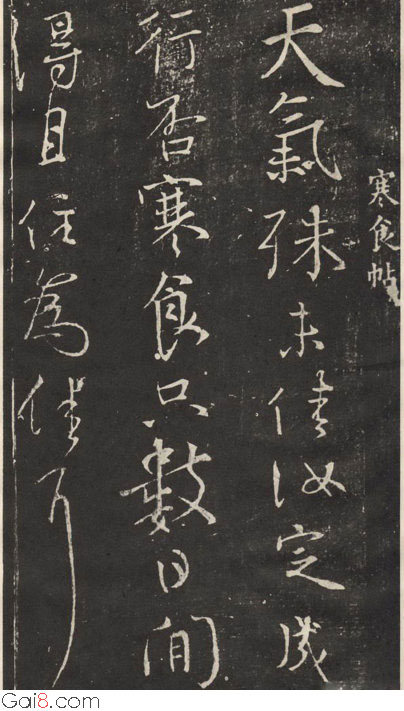 寒食帖
天氣殊未佳汝定成
行否寒食只數日間
得且住為佳耳
Gai8.com